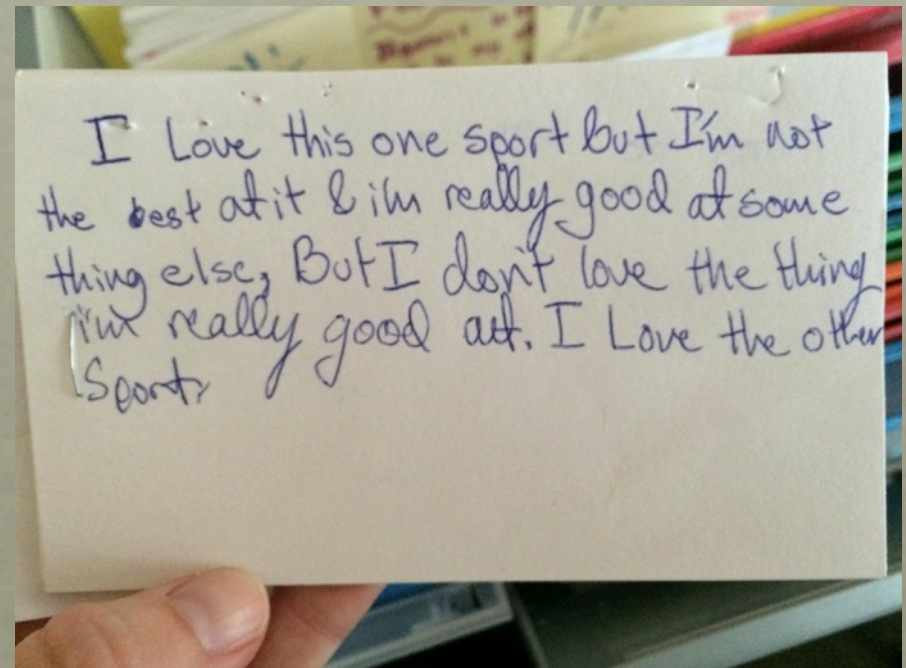 I Love this one sport But I'm not
the best at it & i'm really good at some
thing else, But I don't love the thing
i'm really good at. I Love the other
Sport.